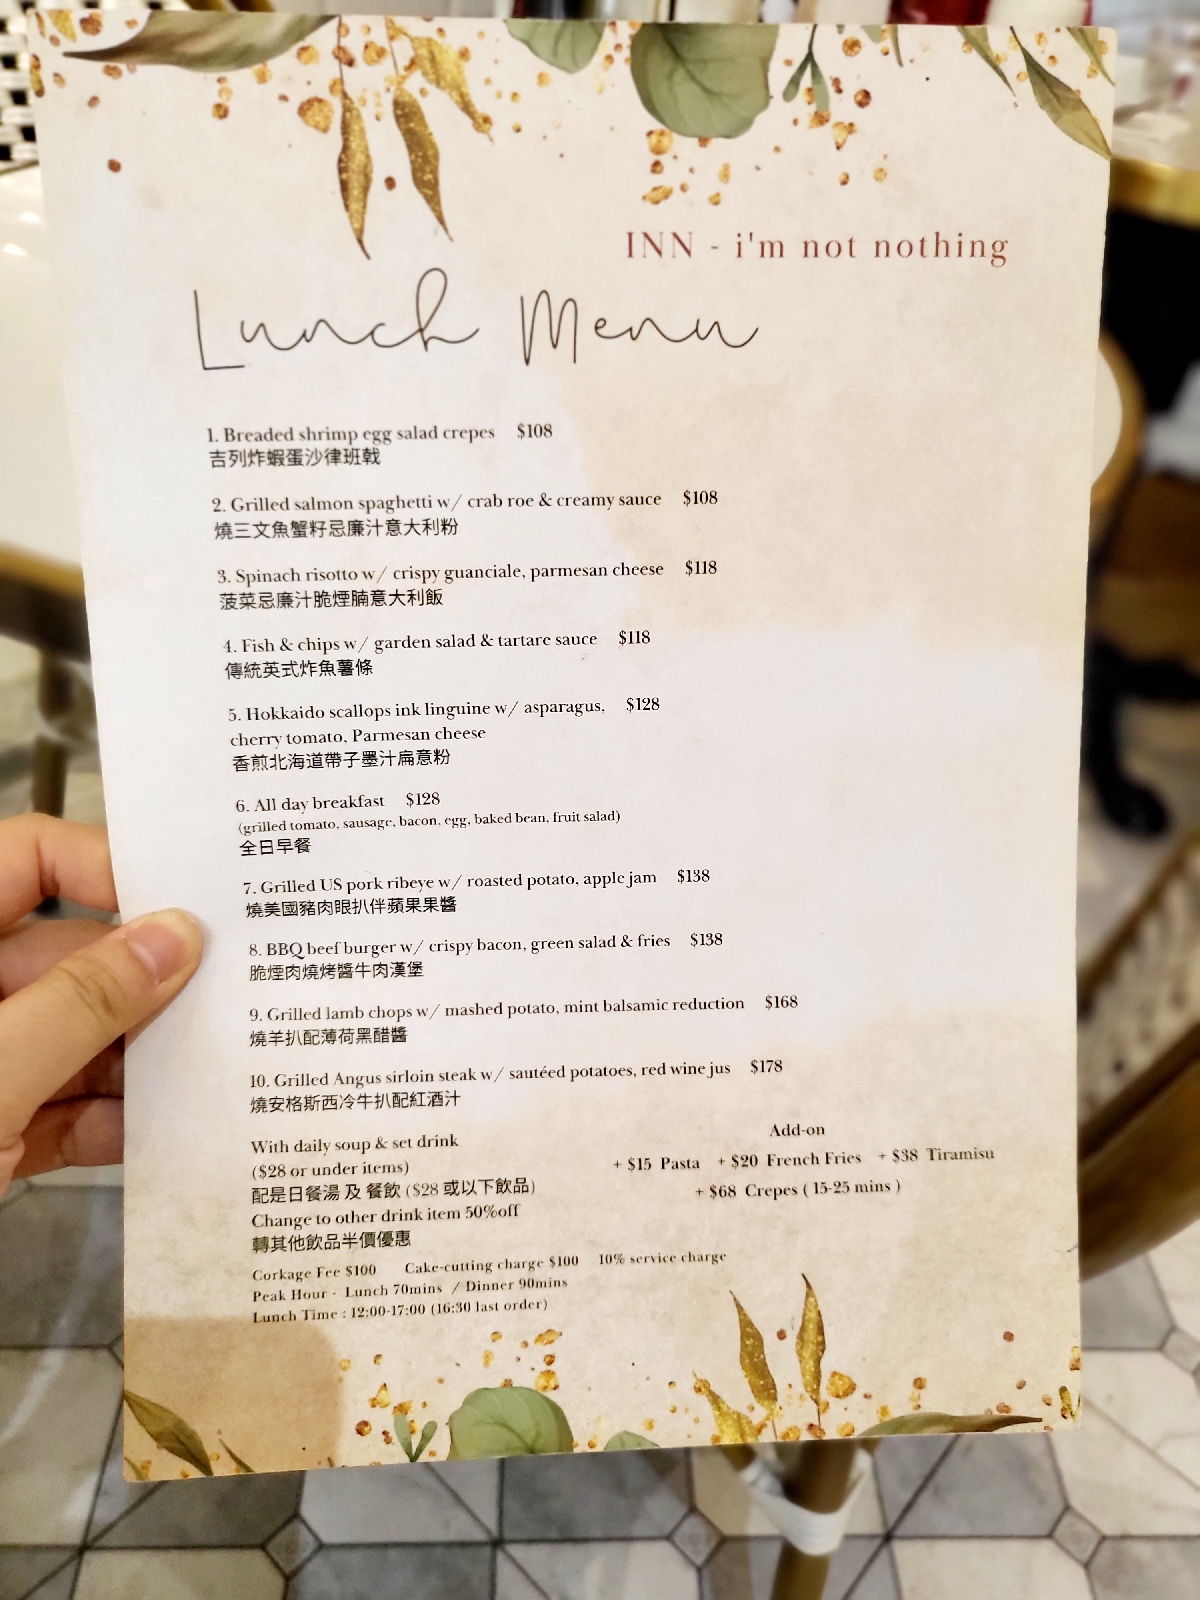 INN - i'm not nothing
Lunch Menu
1. Breaded shrimp egg salad crepes $108
吉列炸蝦蛋沙律班戟
2. Grilled salmon spaghetti w/ crab roe & creamy sauce $108
燒三文魚蟹籽忌廉汁意大利粉
3. Spinach risotto w/ crispy guanciale, parmesan cheese $118
菠菜忌廉汁脆煙腩意大利飯
4. Fish & chips w/ garden salad & tartare sauce $118
傳統英式炸魚薯條
5. Hokkaido scallops ink linguine w/ asparagus, $128
cherry tomato, Parmesan cheese
香煎北海道帶子墨汁扁意粉
6. All day breakfast $128
(grilled tomato, sausage, bacon, egg, baked bean, fruit salad)
全日早餐
7. Grilled US pork ribeye w/ roasted potato, apple jam $138
燒美國豬肉眼扒伴蘋果果醬
8. BBQ beef burger w/ crispy bacon, green salad & fries $138
脆煙肉燒烤醬牛肉漢堡
9. Grilled lamb chops w/ mashed potato, mint balsamic reduction $168
燒羊扒配薄荷黑醋醬
10. Grilled Angus sirloin steak w/ sautéed potatoes, red wine jus $178
燒安格斯西冷牛扒配紅酒汁
With daily soup & set drink
($28 or under items)
配是日餐湯 及 餐飲 ($28 或以下飲品)
Change to other drink item 50%off
轉其他飲品半價優惠
Add-on
+ $15 Pasta + $20 French Fries + $38 Tiramisu
+ $68 Crepes ( 15-25 mins )
Corkage Fee $100 Cake-cutting charge $100 10% service charge
Peak Hour - Lunch 70mins / Dinner 90mins
Lunch Time : 12:00-17:00 (16:30 last order)